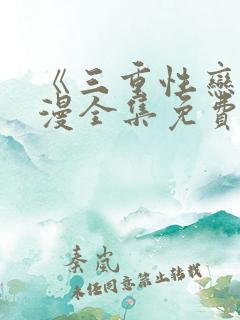 《三重性恋
漫全集免费
秦岚
未经同意禁止转载